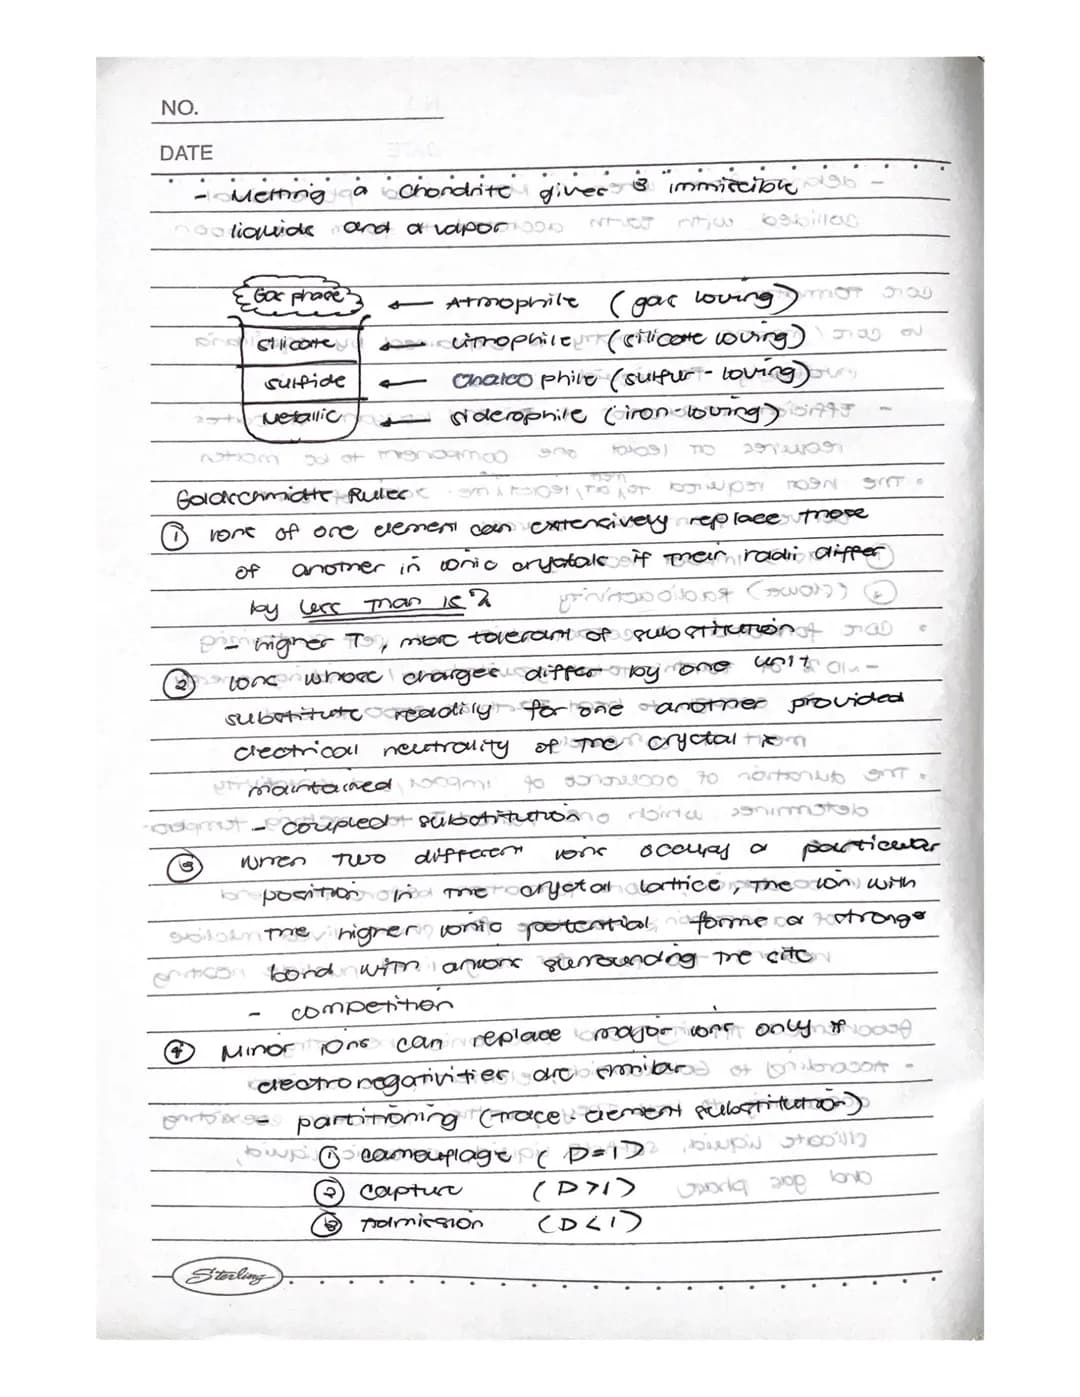 NO.
DATE
- Melting a chondrite gives 3 immiscible
liquids and a vapor
Gas phase ← Atmophile (gas loving)
silicate ← Lithophile (silicate loving)
sulfide ← Chalcophile (sulfur-loving)
Metallic ← siderophile (iron-loving)
Goldschmidt Rules
① Ions of one element can extensively replace those
of another in ionic crystals if their radii differ
by less than 15%
- higher T, more tolerant of substitution
② Ions whose charges differ by one unit
substitute readily for one another provided
electrical neutrality of the crystal is
maintained
- coupled substitution
③ When two different ions occupy a particular
position in the crystal lattice, the ion with
the higher ionic potential forms a stronger
bond with anions surrounding the site
- competition
④ Minor ions can replace major ions only if
electronegativities are similar
- partitioning (trace element substitution)
① camouflage (D=1)
② capture (D>1)
③ Admission (D<1)
Sterling